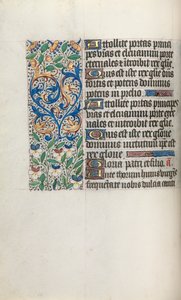 Attollite portas princi
pes vras et elevamini porte
eternales et introibit rex glie.
Quis est iste rex glie dns
fortis et potens dominus
potens in prelio.
Attollite portas principes
vras et elevamini porte eter
nales et introibit rex glie.
Quis est iste rex glorie
dominus virtutum ipse est
rex glorie
Gloria patri et filio. a.
Ante thorum huius virgis
frequentate nobis dulcia canti